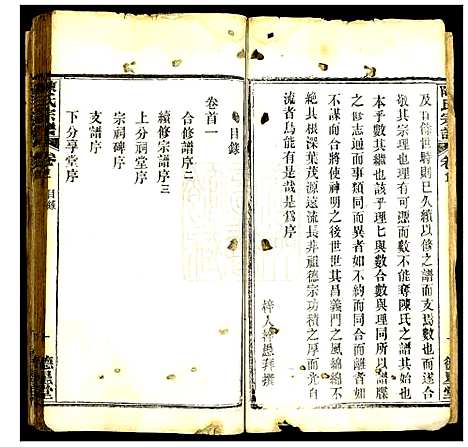 及百餘世時則已久續以修之譜而支爲數而遂合
敬其宗理也理故有可得而憑而數不能奪陳氏之譜其始也
本乎數其繼也該于理七與數合數與理同所以譜牒
之修志通而事類同而異者如不約而同合而離即
不謀而合將使神明之後世世其昌義門之風綿綿不
絕其根深葉茂源遠流長非祖德宗功積之厚而光自
流者烏能有以哉是爲序
梓人 拜撰
陳氏宗譜
卷首
德星堂
目錄
卷首一
合修譜序二
續修宗譜序
上分祠堂序
宗祠碑序
支譜序
下分享堂序
陳氏宗譜
卷首
目錄
德星堂